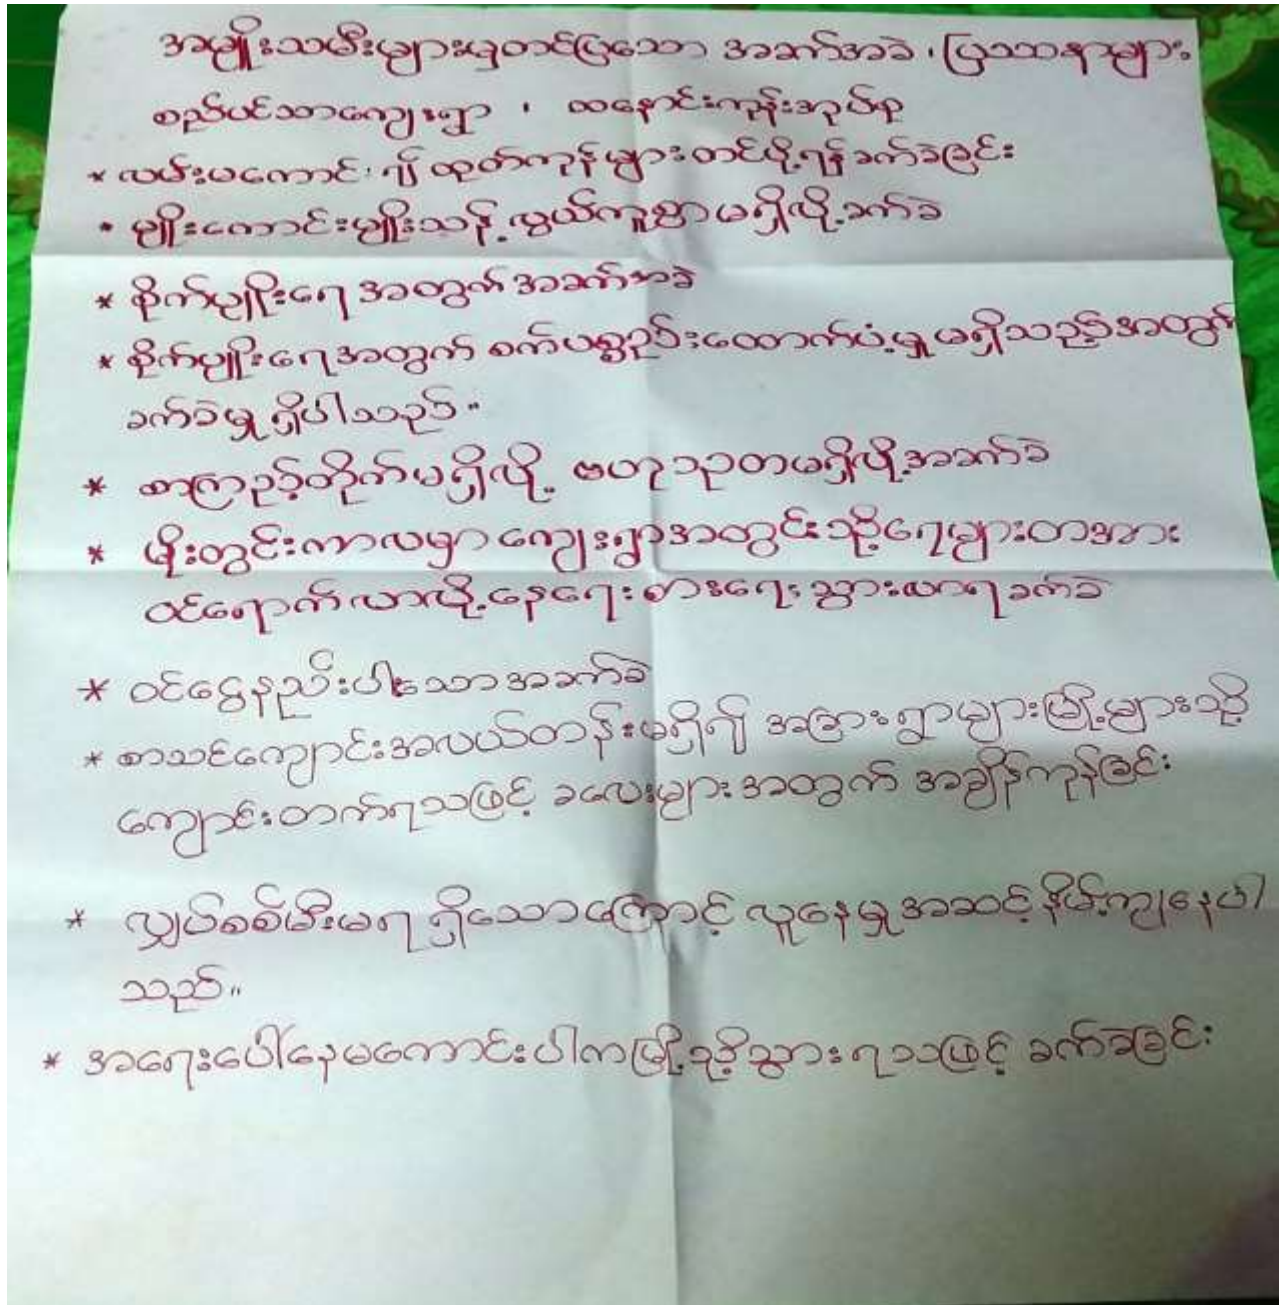 အမျိုးသမီးများမှတင်ပြသော အခက်အခဲ ၊ ပြဿနာများ
စည်ပင်သာကျေးရွာ ၊ ထနောင်းကုန်းအုပ်စု
* လမ်းမကောင်း၍ ထုတ်ကုန်များတင်ပို့ရန်ခက်ခဲခြင်း
* မျိုးကောင်းမျိုးသန့်လွယ်ကူစွာမရှိလို့ခက်ခဲ
* စိုက်ပျိုးရေအတွက်အခက်အခဲ
* စိုက်ပျိုးရေအတွက် စက်ပစ္စည်းထောက်ပံ့မှုမရှိသည့်အတွက်
ခက်ခဲမှုရှိပါသည်။
* စာကြည့်တိုက်မရှိလို့ ဗဟုသုတမရှိလို့အခက်ခဲ
* မိုးတွင်းကာလမှာကျေးရွာအတွင်းသို့ရေများတအား
ဝင်ရောက်လာလို့နေရေးစားရေးသွားလာရခက်ခဲ
* ဝင်ငွေနည်းပါးသောအခက်ခဲ
* စာသင်ကျောင်းအလယ်တန်းမရှိ၍ အခြားရွာများမြို့များသို့
ကျောင်းတက်ရသဖြင့် ခလေးများအတွက် အချိန်ကုန်ခြင်း
* လျှပ်စစ်မီးမရရှိသောကြောင့် လူနေမှုအဆင့်နိမ့်ကျနေပါ
သည်။
* အရေးပေါ်နေမကောင်းပါကမြို့သို့သွားရသဖြင့် ခက်ခဲခြင်း